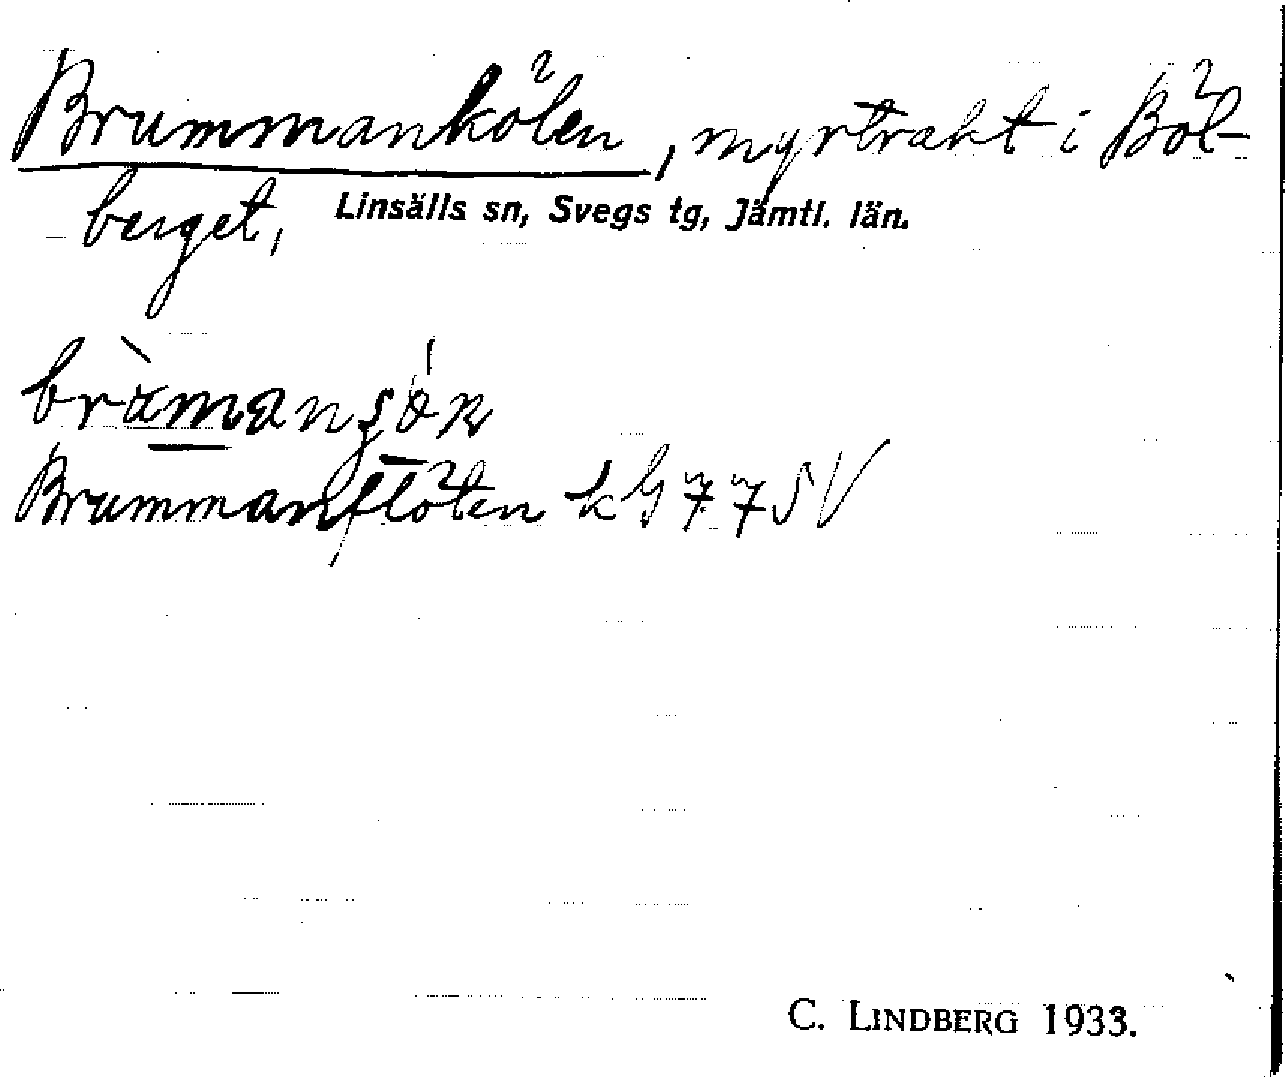 Brummankölen, myrtrakt i Böl-
berget, Linsälls sn, Svegs tg, Jämtl. län.
Brummanflöten kG 7 7 SV
C. LINDBERG 1933.